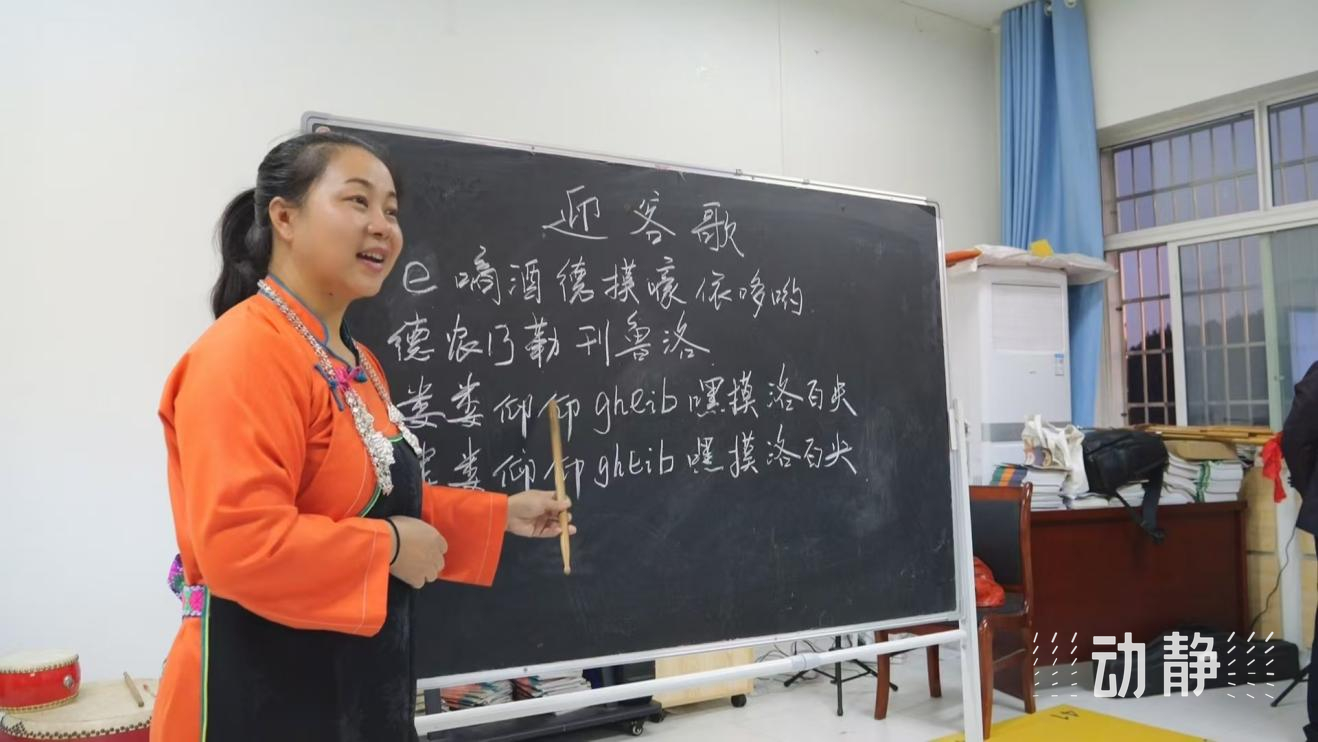 迎客歌
e嘀酒德摸嚎依哆哟
德农乃勒刊鲁洛
娄娄仰仰gheib嘿摸洛百央
娄娄仰仰gheib嘿摸洛百央
动静